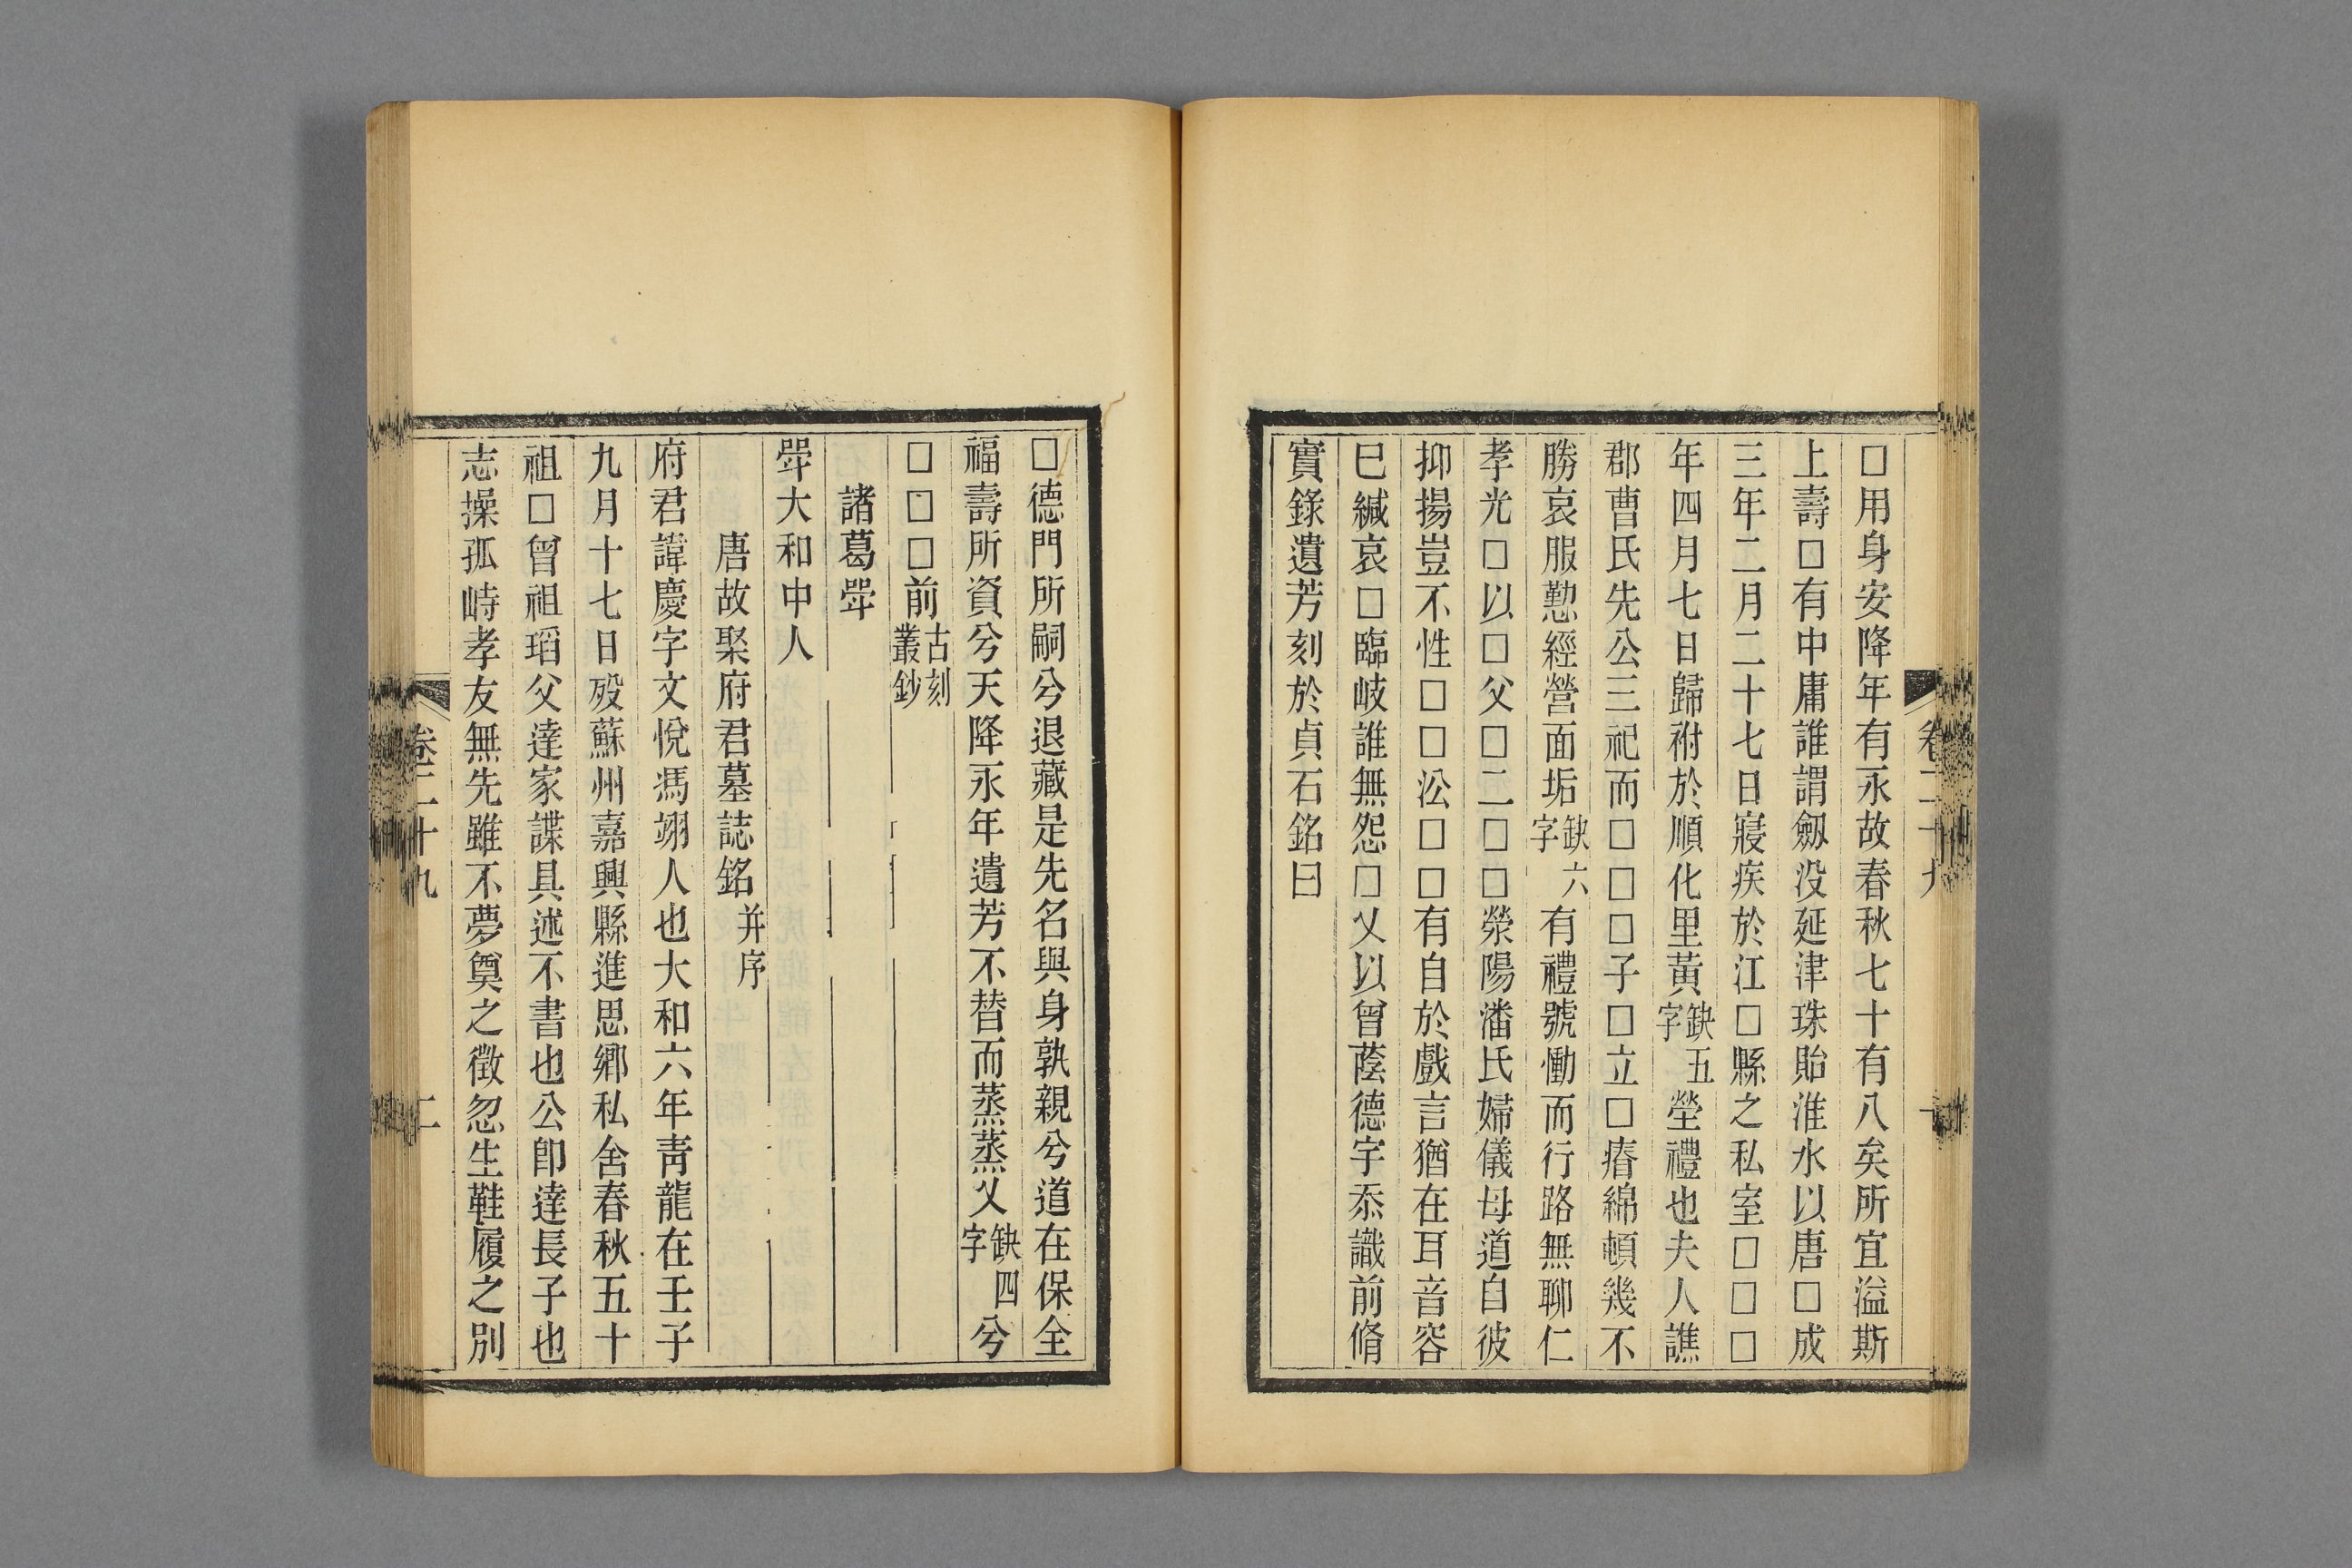 □用身安降年有永故春秋七十有八矣所宜溢斯
上壽□有中庸誰謂劔没延津珠貽淮水以唐□成
三年二月二十七日寢疾於江□縣之私室□□□
年四月七日歸祔於順化里黃缺五字塋禮也夫人譙
郡曹氏先公三祀而□□□子□立□瘠綿頓幾不
勝哀服懃經營面垢缺六字有禮號慟而行路無聊仁
孝光□以□父□二□□滎陽潘氏婦儀母道自彼
抑揚豈不性□□㳂□□有自於戲言猶在耳音容
巳緘哀□臨岐誰無怨□乂以曾蔭德宇忝識前脩
實錄遺芳刻於貞石銘曰
卷二十九
□德門所嗣兮退藏是先名與身孰親兮道在保全
福壽所資兮天降永年遺芳不替而蒸蒸乂缺四字兮
□□□前古刻叢鈔
諸葛斝
斝大和中人
唐故聚府君墓誌銘并序
府君諱慶字文悅馮翊人也大和六年青龍在壬子
九月十七日歿蘇州嘉興縣進思鄉私舍春秋五十
祖□曾祖瑫父達家諜具述不書也公卽達長子也
志操孤峙孝友無先雖不夢奠之徵忽生鞋履之別
卷二十九
二